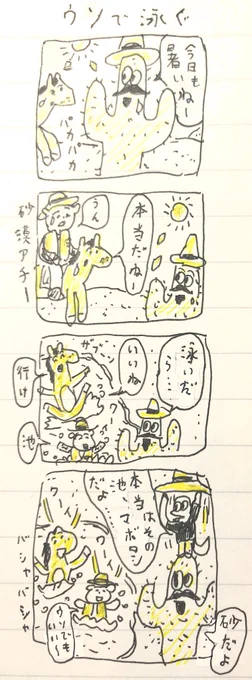 ウソで泳ぐ
今日も
暑いねー
パカパカ
本当だねー
うん
砂漠アチー
泳いだら……
いいね
ザブーン
行け
池
本当はその
池、マボロシ
だよ
ワー
ワイ
砂だよ
ウソでも
いいー
バシャバシャ